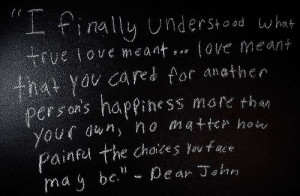 "I finally understood what
true love meant... love meant
that you cared for another
person's happiness more than
your own, no matter how
painful the choices you face
may be." - Dear John